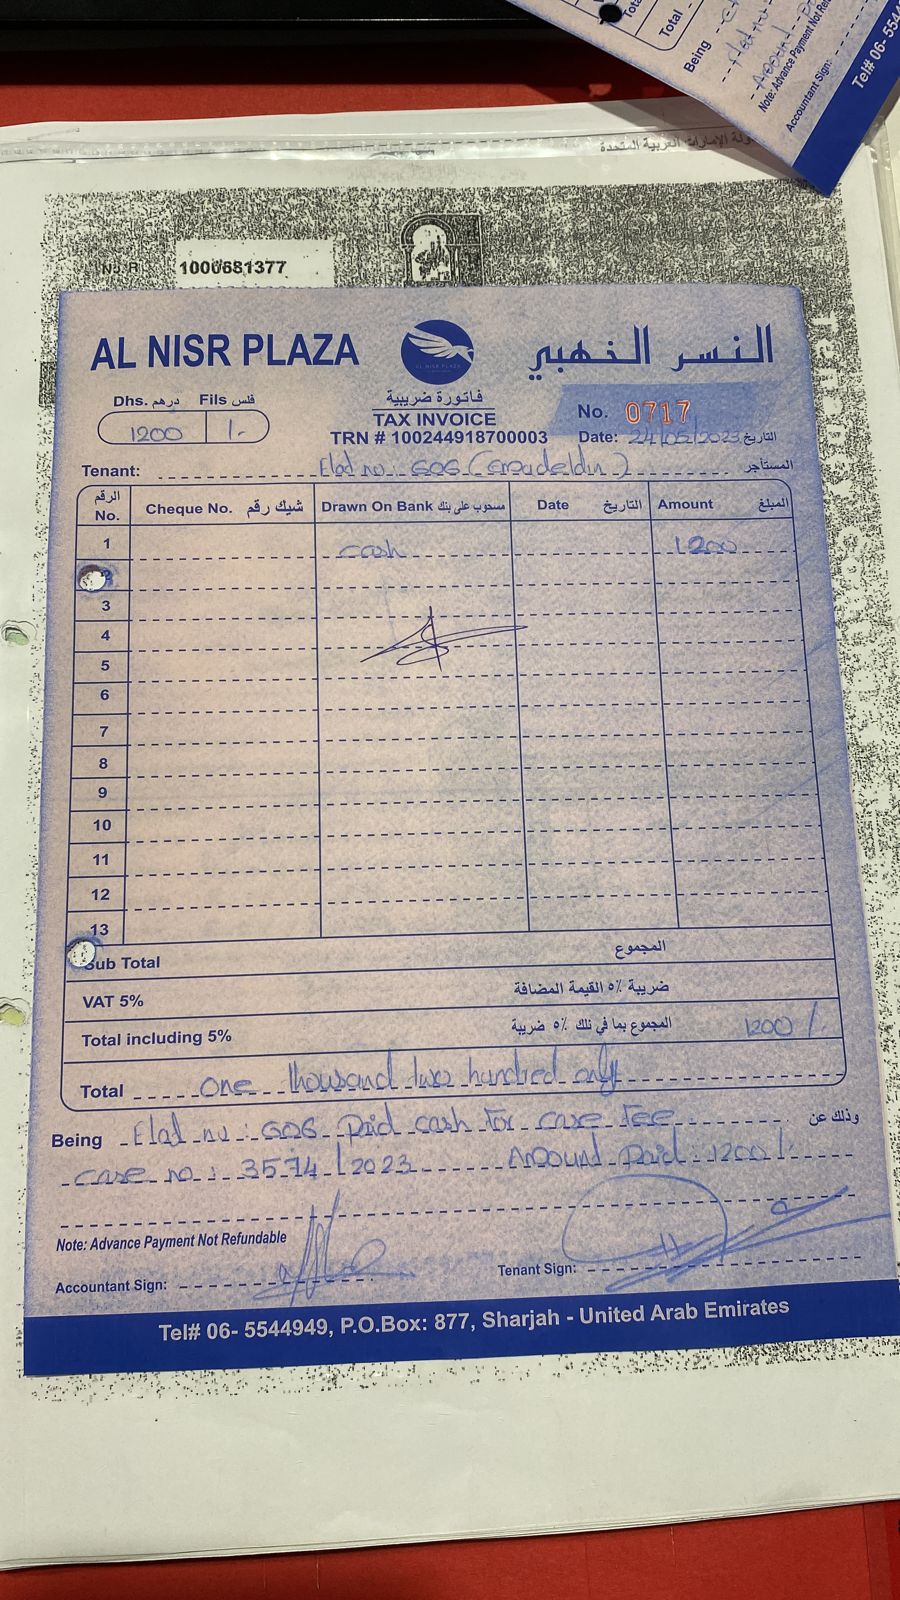 Tota
Total
Being
Note: Advance Payment Not Ref
Accountant Sign:
Tel# 06- 5544
ولة الإمارات العربية المتحدة
1000681377
AL NISR PLAZA
النسر الذهبي
Dhs. درهم Fils فلس
1200 /-
فاتورة ضريبية
TAX INVOICE
TRN # 100244918700003
No. 0717
Date: 24/05/2023 التاريخ
Tenant: Flat no 606 المستأجر
الرقم No. Cheque No. شيك رقم Drawn On Bank مسحوب على بنك Date التاريخ Amount المبلغ
1 cash 1200
3
4
5
6
7
8
9
10
11
12
13
Sub Total المجموع
VAT 5% ضريبة ٥٪ القيمة المضافة
Total including 5% المجموع بما في ذلك ٥٪ ضريبة 1200/-
Total one thousand two hundred only
Being Flat no: 606 Paid cash for case fee وذلك عن
case no: 3574/2023 Amount Paid: 1200/-
Note: Advance Payment Not Refundable
Accountant Sign:
Tenant Sign:
Tel# 06- 5544949, P.O.Box: 877, Sharjah - United Arab Emirates